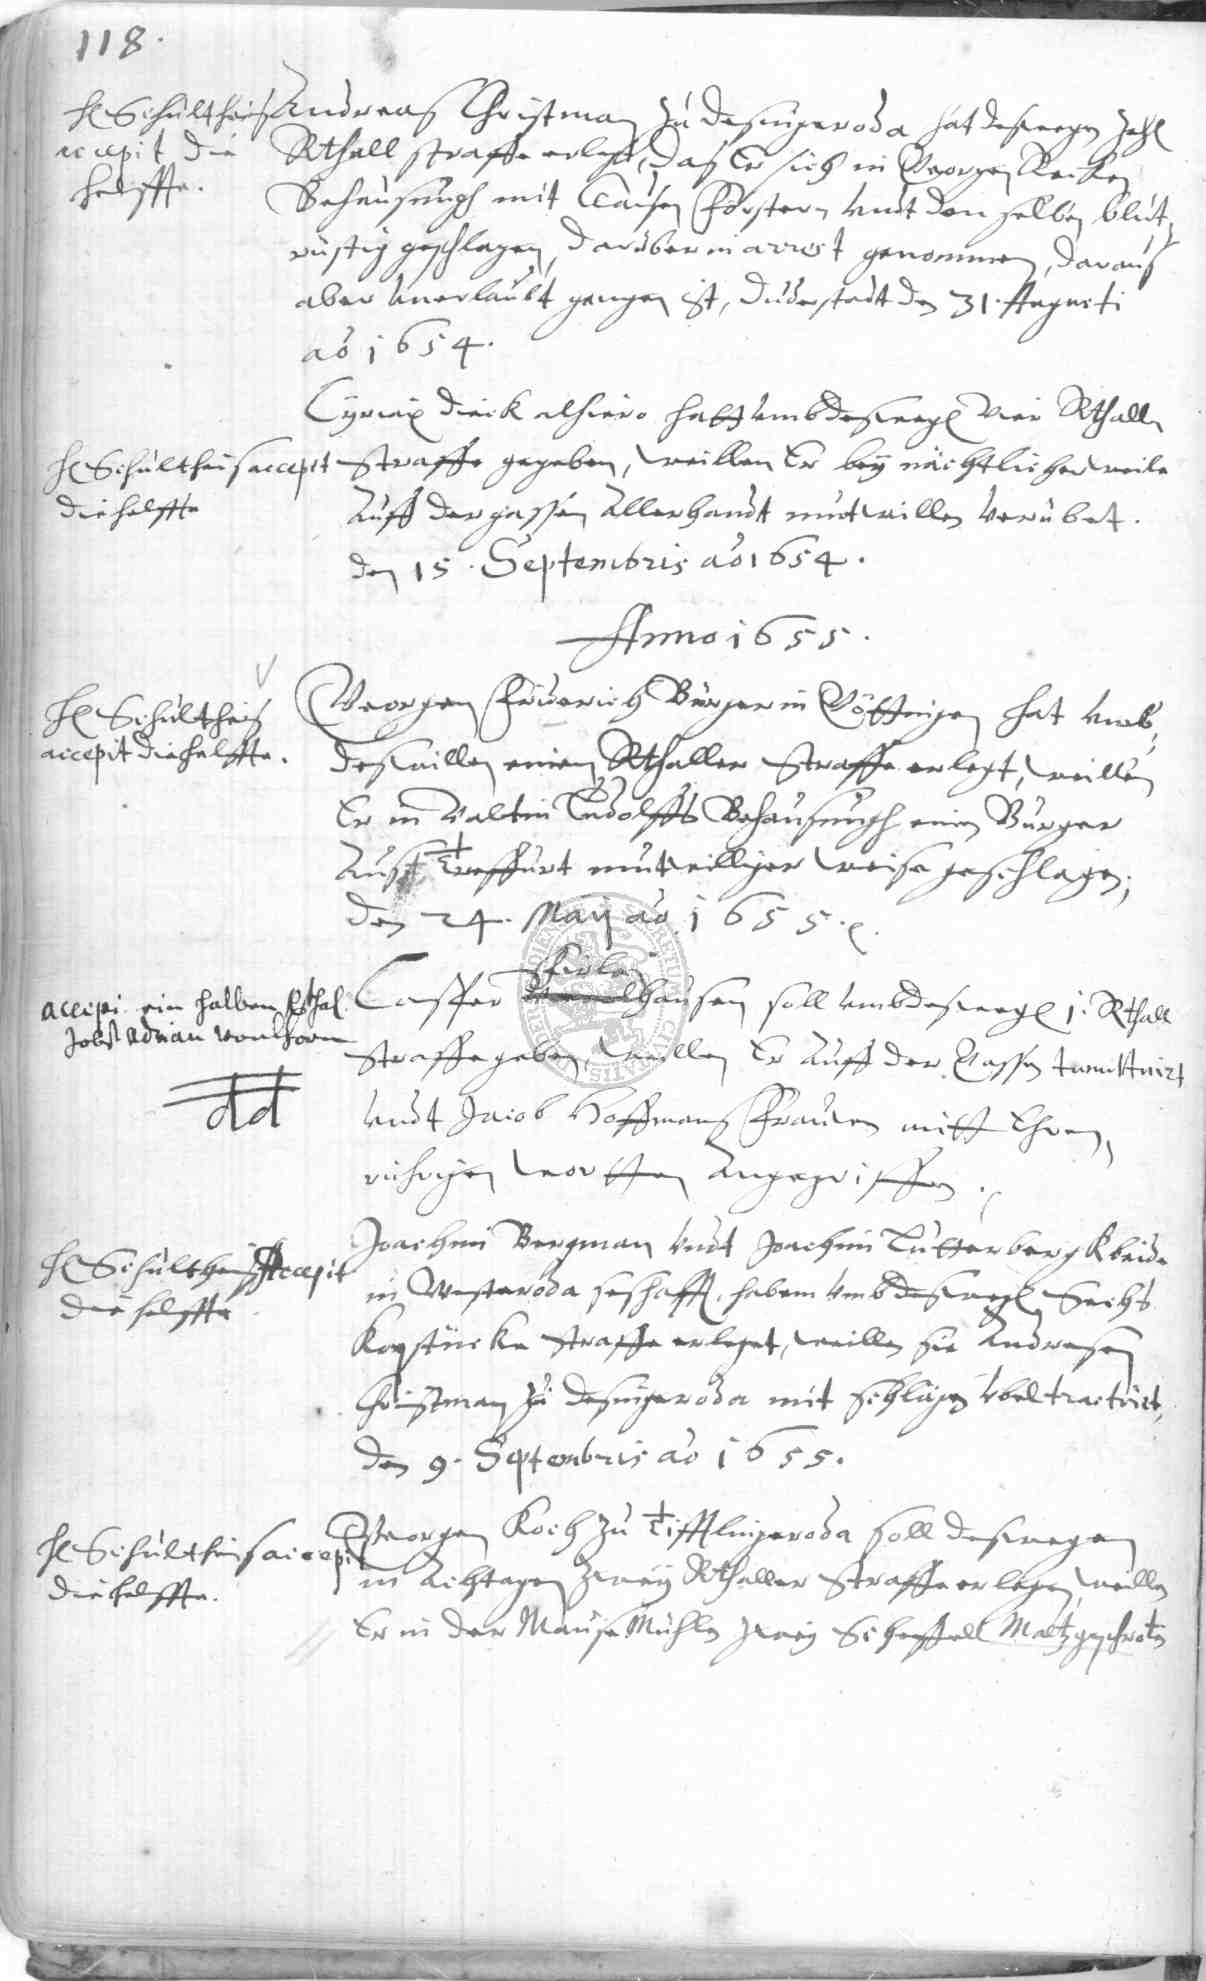 118.
H Schultheis
accepit die
helffte.
Andreas Christman zu Desingeroda hat deswegen
Rthall straffe erlegt, das Er sich in Georgen
Behausungh mit Clausen Förstern undt den selben blut
rüstig geschlagen, darüber in arrest genommen, daraus
aber unerlaubt gangen ist, Duderstadt den 31. Augusti
ao 1654.
Cyriax Dieck alhiero hatt umbdeswegen vier Rthall
H Schultheis accepit
die helffte
straffe gegeben, weillen Er bey nächtlicher weile
Auff der gassen Allerhandt mutwillen verübet.
den 15. Septembris ao 1654.
Anno 1655.
H Schultheis
accepit die helffte.
Georgen Friderich Bürger in Göttingen hat umb
deswillen einen Rthaller Straffe erlegt, weillen
Er in Valtin Ludolffs Behausungh einen Bürger
Aus Treffurt mutwilliger weise geschlagen,
den 24. Maij ao 1655.
accepi ein halben Rthal.
Jobst Adrian von Horn
Casper hausen soll umbdeswegen 1. Rthall
Straffe geben, weillen Er Auff der Gassen tumultuirt
undt Jacob Hoffmans Frauen mitt Ehren
rührigen wortten Angegriffen.
H Schultheis Accepit
die helffte
Joachim Bergman undt Joachim Lutterbergk beide
in Westeroda haben umbdeswegen Sechs
Kopstücke Straffe erleget, weillen sie Andresen
Christman zu Desingeroda mit schlägen übel tractirt,
den 9. Septembris ao 1655.
H Schultheis accepit
die helffte.
Georgen Koch zu Tifftlingeroda soll deswegen
in Achtagen zwey Rthaller Straffe erlegen, weillen
Er in der Mause Mühlen zwey Scheffell Maltz geschroten